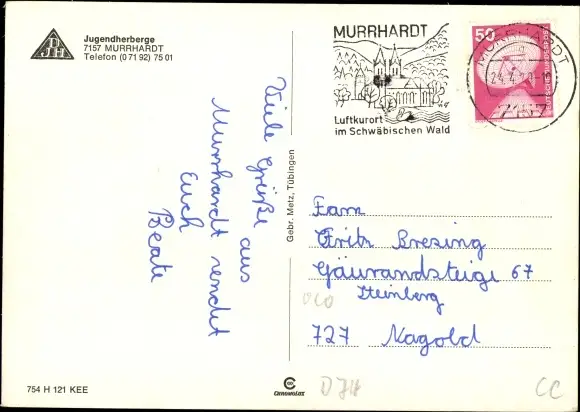 DJH
Jugendherberge
7157 MURRHARDT
Telefon (0 71 92) 75 01
MURRHARDT
Luftkurort
im Schwäbischen Wald
50
DEUTSCHE BUNDESPOST
MURRHARDT
7157
Viele Grüße aus
Murrhardt sendet
Euch
Beate
Gebr. Metz, Tübingen
Fam
Fritz Bresing
Gäurandsteige 67
Steinberg
727 Nagold
754 H 121 KEE
CHROMOLUX
DJH
CC